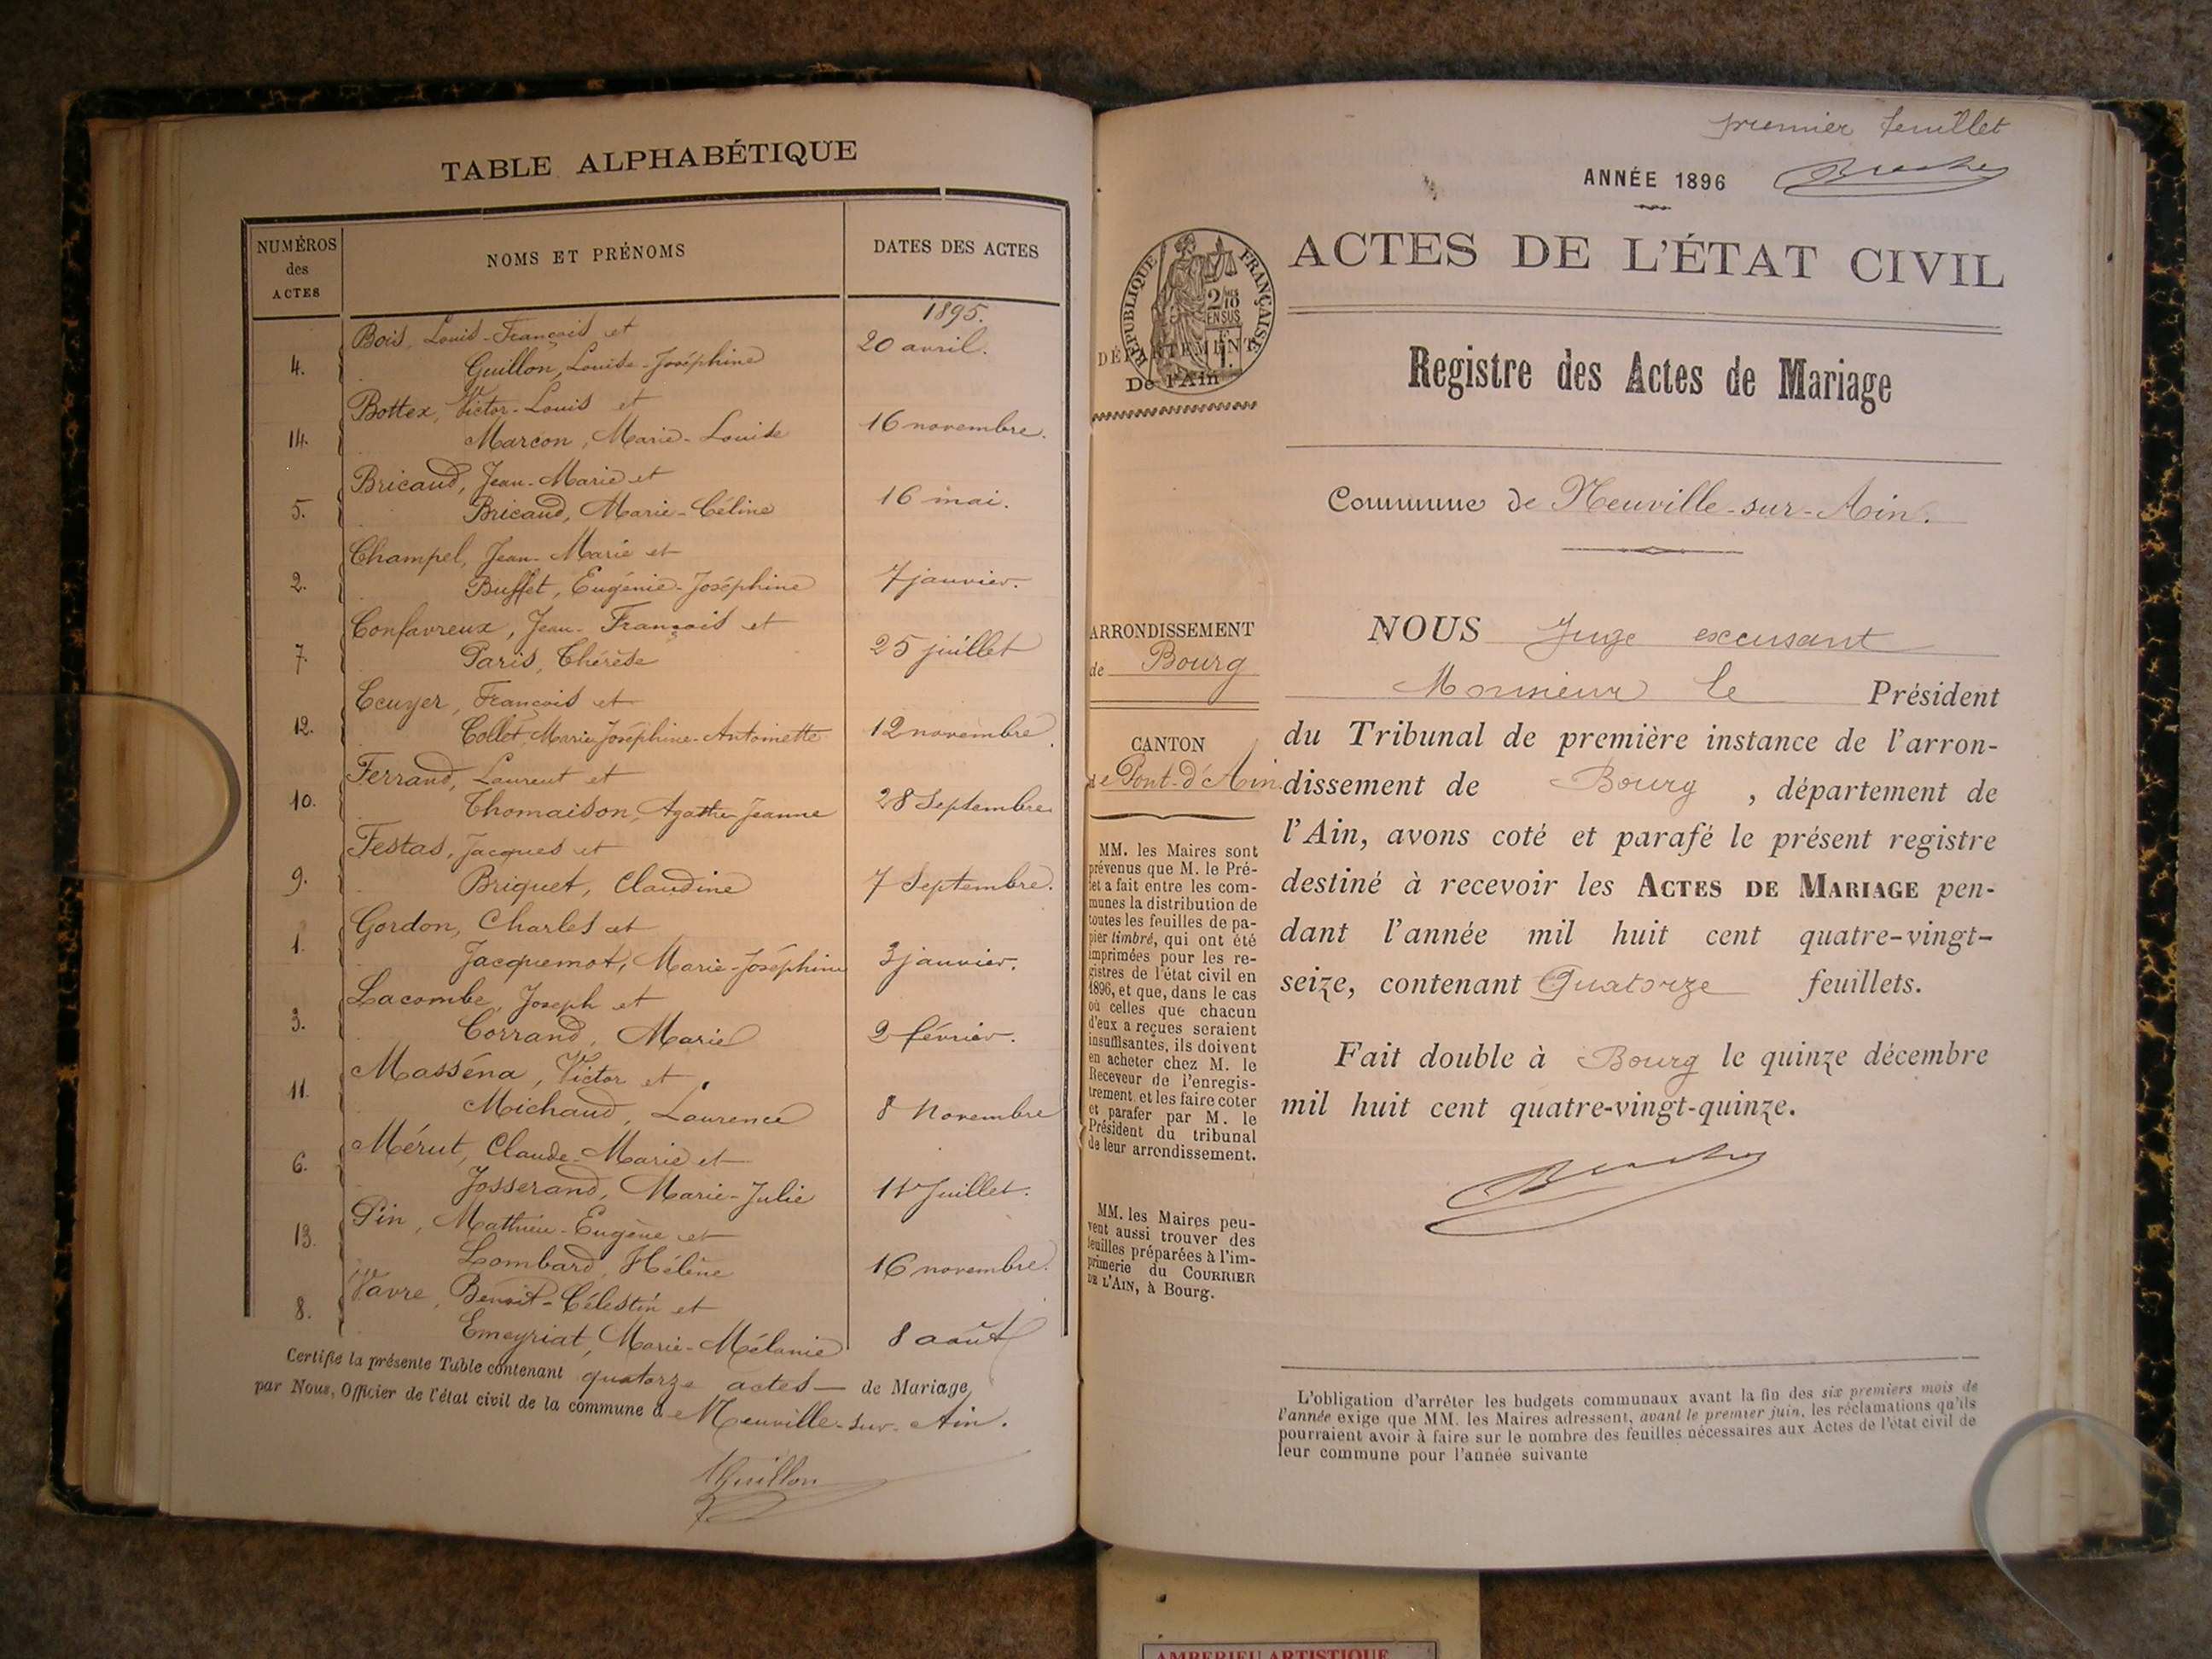 TABLE ALPHABÉTIQUE
NUMÉROS des ACTES
NOMS ET PRÉNOMS
DATES DES ACTES
1895.
Bois, Louis-François et
4. Guillon, Louise-Joséphine 20 avril.
Bottex, Victor-Louis et
14. Marcon, Marie-Louise 16 novembre.
Bricaud, Jean-Marie et
5. Bricaud, Marie-Céline 16 mai.
Champel, Jean-Marie et
2. Buffet, Eugénie-Joséphine 7 janvier.
Confavreux, Jean-François et
7. Paris, Thérèse 25 juillet
Ecuyer, François et
12. Collet, Marie Joséphine-Antoinette 12 novembre.
Ferrand, Laurent et
10. Thomaison, Agathe Jeanne 28 Septembre
Festas, Jacques et
9. Briquet, Claudine 7 Septembre.
Gordon, Charles et
1. Jacquemot, Marie-Joséphine 3 janvier.
Lacombe, Joseph et
3. Corrand, Marie 2 février.
Masséna, Victor et
11. Michaud, Laurence 8 Novembre
Mérut, Claude-Marie et
6. Josserand, Marie-Julie 11 Juillet.
Pin, Mathieu-Eugène et
13. Lombard, Hélène 16 novembre.
Vavre, Benoit-Célestin et
8. Emeyriat, Marie-Mélanie 8 août
Certifié la présente Table contenant quatorze actes de Mariage,
par Nous, Officier de l'état civil de la commune de Neuville-sur-Ain.
Guillon
premier feuillet
ANNÉE 1896
RÉPUBLIQUE FRANÇAISE
2/10 EN SUS
DÉPARTEMENT
De l'Ain
ACTES DE L'ÉTAT CIVIL
Registre des Actes de Mariage
Commune de Neuville-sur-Ain.
ARRONDISSEMENT
de Bourg
CANTON
de Pont-d'Ain
MM. les Maires sont
prévenus que M. le Pré-
fet a fait entre les com-
munes la distribution de
toutes les feuilles de pa-
pier timbré, qui ont été
imprimées pour les re-
gistres de l'état civil en
1896, et que, dans le cas
où celles que chacun
d'eux a reçues seraient
insuffisantes, ils doivent
en acheter chez M. le
Receveur de l'enregis-
trement, et les faire coter
et parafer par M. le
Président du tribunal
de leur arrondissement.
MM. les Maires peu-
vent aussi trouver des
feuilles préparées à l'im-
primerie du COURRIER
DE L'AIN, à Bourg.
NOUS Juge excusant
Monsieur le Président
du Tribunal de première instance de l'arron-
dissement de Bourg, département de
l'Ain, avons coté et parafé le présent registre
destiné à recevoir les ACTES DE MARIAGE pen-
dant l'année mil huit cent quatre-vingt-
seize, contenant Quatorze feuillets.
Fait double à Bourg le quinze décembre
mil huit cent quatre-vingt-quinze.
L'obligation d'arrêter les budgets communaux avant la fin des six premiers mois de
l'année exige que MM. les Maires adressent, avant le premier juin, les réclamations qu'ils
pourraient avoir à faire sur le nombre des feuilles nécessaires aux Actes de l'état civil de
leur commune pour l'année suivante
AMBERIEU ARTISTIQUE